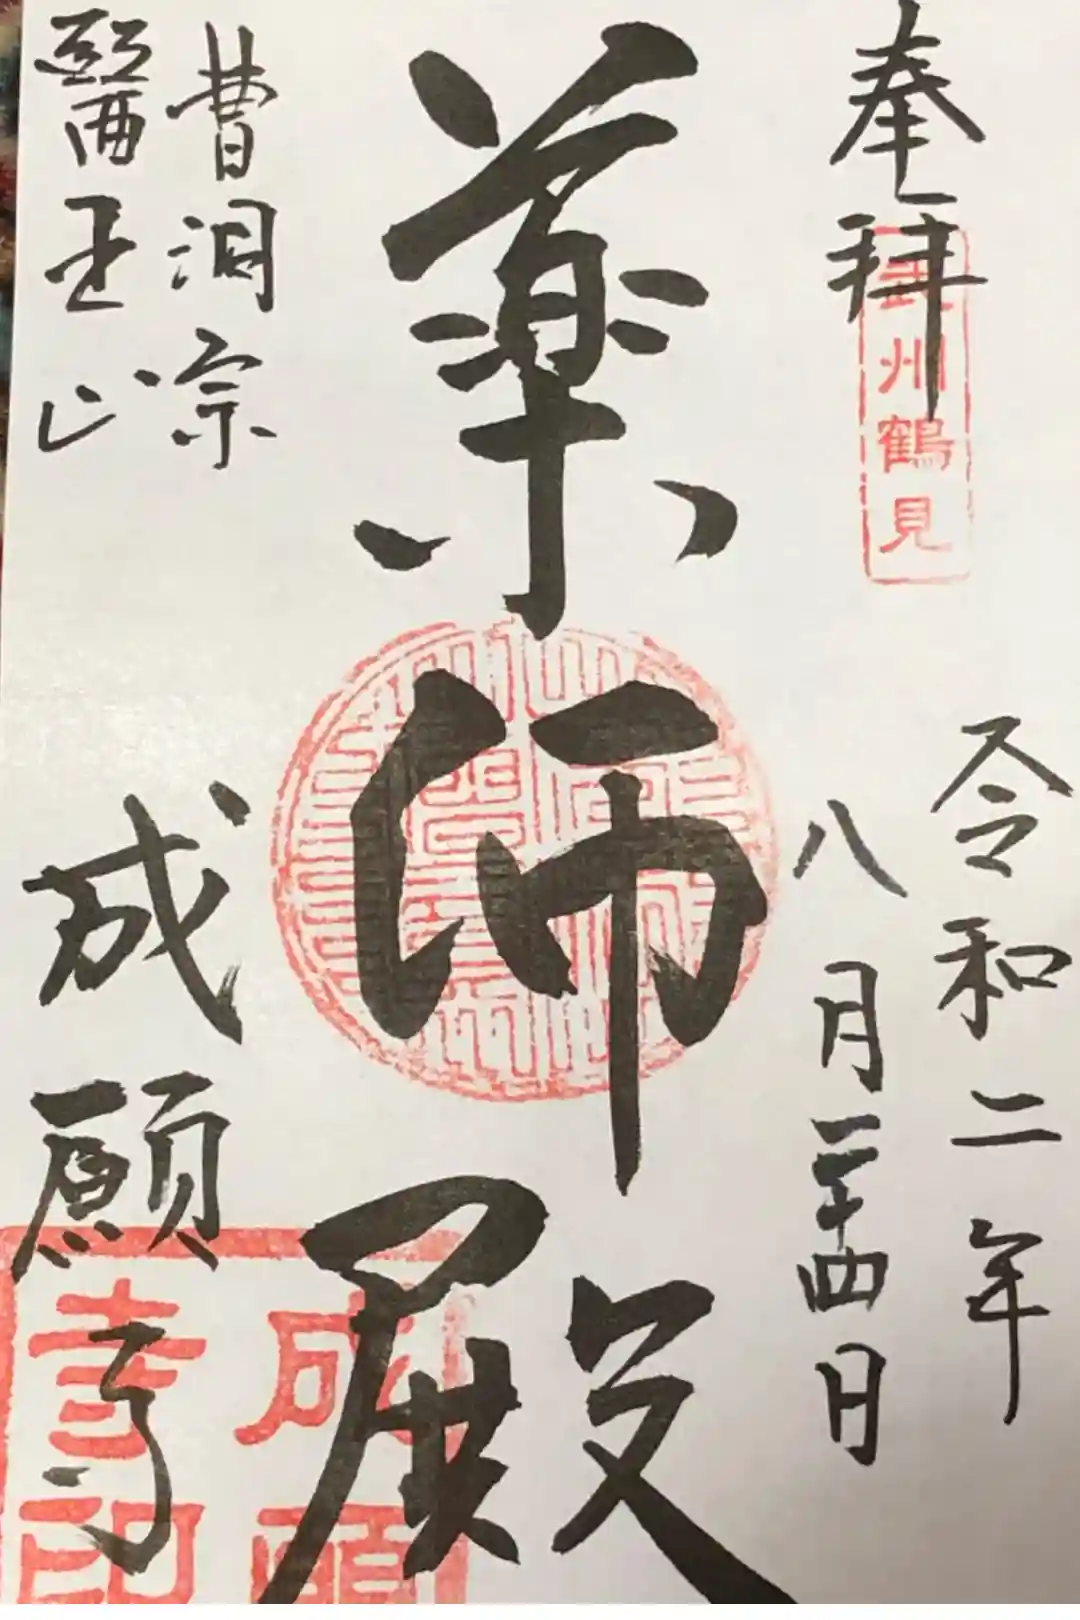 奉拝
武州鶴見
令和二年
八月二十四日
薬師殿
曹洞宗
醫王山
成願寺
成願寺印